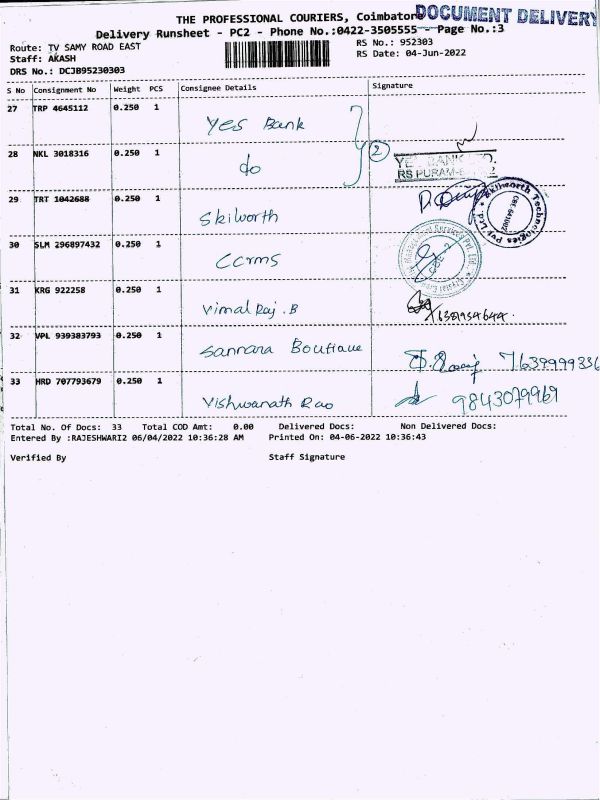 THE PROFESSIONAL COURIERS, Coimbatore DOCUMENT DELIVERY
Delivery Runsheet - PC2 - Phone No.:0422-3505555 - Page No.:3
Route: TV SAMY ROAD EAST
RS No.: 952303
Staff: AKASH
RS Date: 04-Jun-2022
DRS No.: DCJB95230303
S No Consignment No Weight PCS Consignee Details Signature
27 TRP 4645112 0.250 1 Yes Bank
28 NKL 3018316 0.250 1 do 2
YES BANK LTD.
RS PURAM
29 TRT 1042688 0.250 1 Skilworth
Skilworth Technologies Pvt Ltd
CBE 641002
30 SLM 296897432 0.250 1 CCRMS
Services Pvt. Ltd.
31 KRG 922258 0.250 1 Vimal Raj .B
32 VPL 939383793 0.250 1 Sannara Boutique 7639999336
33 HRD 707793679 0.250 1 Vishwanath Rao 9843079969
Total No. Of Docs: 33 Total COD Amt: 0.00 Delivered Docs: Non Delivered Docs:
Entered By :RAJESHWARI2 06/04/2022 10:36:28 AM Printed On: 04-06-2022 10:36:43
Verified By Staff Signature